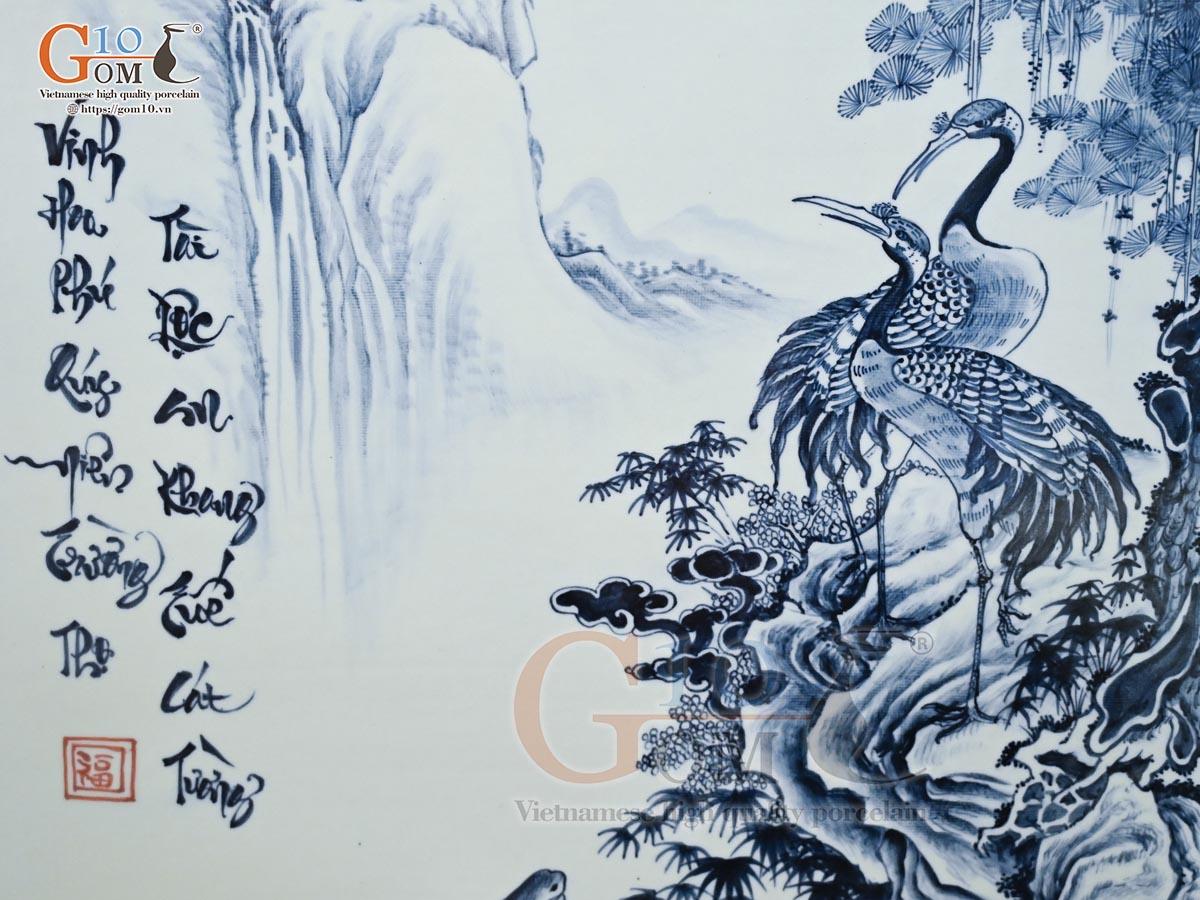 G10
GOM
®
Vietnamese high quality porcelain
@ https://gom10.vn
Vinh Hoa Phú Quý niên Trường Thọ
Tài Lộc An Khang Tuế Cát Tường
福
G10
GOM
®
Vietnamese high quality porcelain